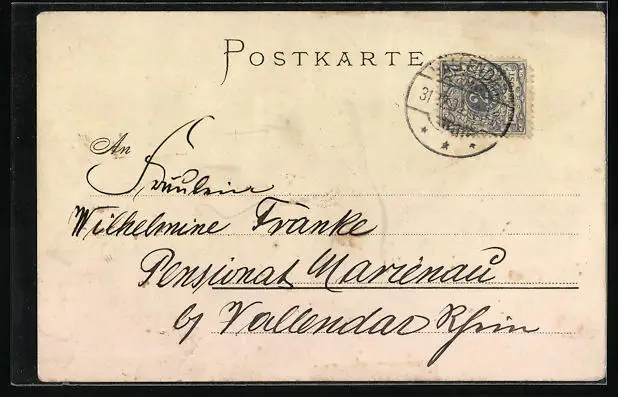 POSTKARTE
VALLENDAR
31
2
An
Fräulein
Wilhelmine Franke
Pensionat Marienau
b/ Vallendar Rhein